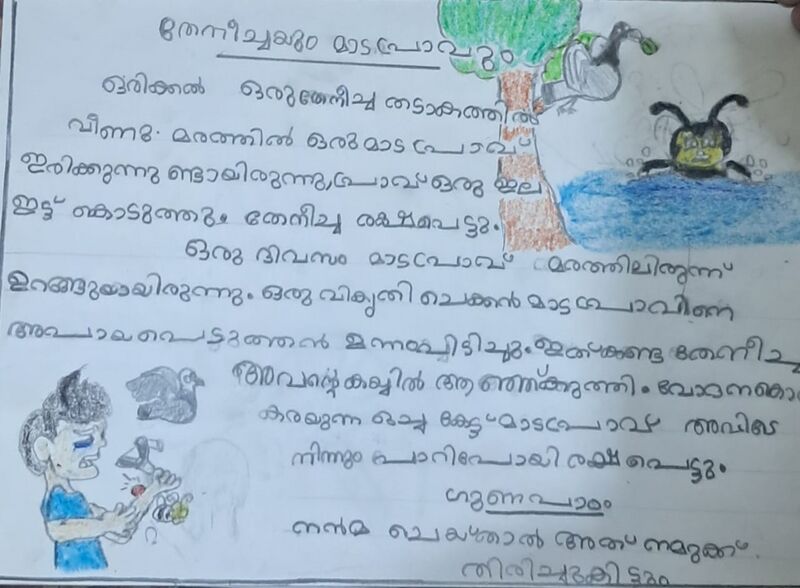 തേനീച്ചയും മാടപ്രാവും
ഒരിക്കൽ ഒരു തേനീച്ച തടാകത്തിൽ
വീണു. മരത്തിൽ ഒരു മാടപ്രാവ്
ഇരിക്കുന്നു ണ്ടായിരുന്നു, പ്രാവ് ഒരു ഇല
ഇട്ട് കൊടുത്തു. തേനീച്ച രക്ഷപെട്ടു.
ഒരു ദിവസം മാടപ്രാവ് മരത്തിലിരുന്ന്
ഉറങ്ങുയായിരുന്നു. ഒരു വികൃതി ചെക്കൻ മാടപ്രാവിനെ
അപായപെടുത്തൻ ഉന്നംപിടിച്ചു. ഇത്കണ്ട തേനീച്ച
അവന്റെ കയ്യിൽ ആഞ്ഞ്കുത്തി. വേദനകൊ
കരയുന്ന ഒച്ച കേട്ട് മാടപ്രാവ് അവിടെ
നിന്നും പാറിപോയി രക്ഷപെട്ടു.
ഗുണപാഠം
നൻമ ചെയ്താൽ അത് നമുക്ക്
തിരിച്ചുകിട്ടും